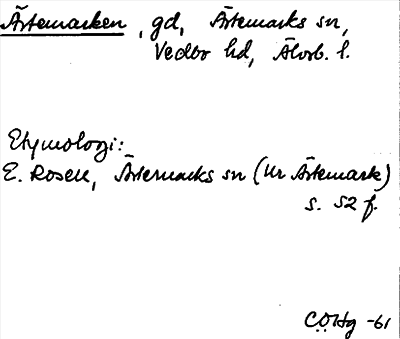 Ärtemarken, gd, Ärtemarks sn,
Vedbo hd, Älvsb. l.
Etymologi:
E. Rosell, Ärtemarks sn (ur Ärtemark)
s. 52 f.
CÖHg -61